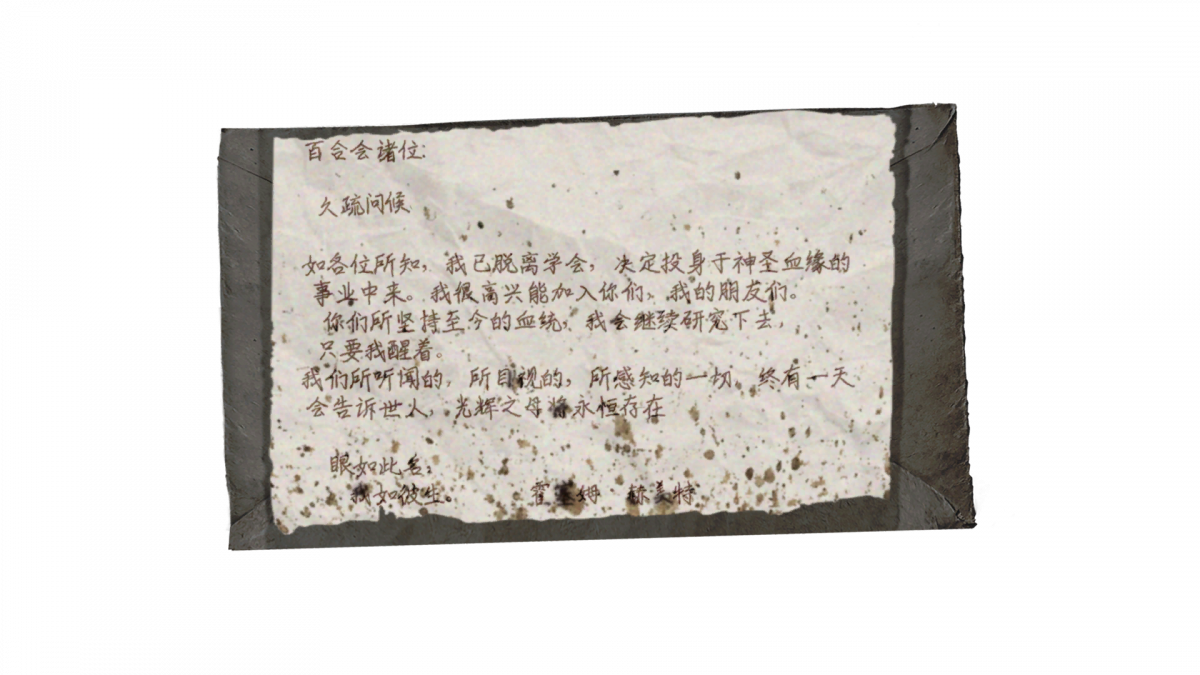 百合会诸位:
久疏问候
如各位所知，我已脱离学会，决定投身于神圣血缘的
事业中来。我很高兴能加入你们，我的朋友们。
你们所坚持至今的血统，我会继续研究下去，
只要我醒着。
我们所听闻的，所目视的，所感知的一切，终有一天
会告诉世人，光辉之母将永恒存在
眼如此名；
我如彼生。 霍 姆·赫美特